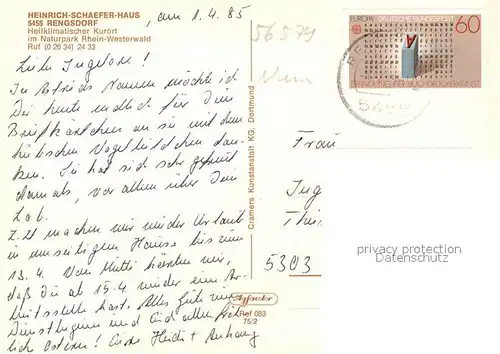 HEINRICH-SCHAEFER-HAUS
5455 RENGSDORF
Heilklimatischer Kurort
im Naturpark Rhein-Westerwald
Ruf (0 26 34) 24 33
, am 1.4.85
56579
Liebe Ingelore!
In Astrids Namen möchte ich
Dir heute endlich für Dein
Briefkärtchen an sie mit dem
hübschen Vogelbildchen dan-
ken. Sie hat sich sehr gefreut
damals, vor allem über Dein
Lob.
Z.Zt machen wir wieder Urlaub
in unseligen Hause bis zum
13.4. Von Mutti hörten wir,
daß Du ab 15.4 wieder eine Ar-
beitsstelle hast. Alles Gute zum
Dienstbeginn und Euch allen fröh-
lich Ostern! Eure Heidi + Anhang
Cramers Kunstanstalt KG, Dortmund
Ref 083
75/2
EUROPA DEUTSCHE BUNDESPOST 60
Frau
Inge
5303
privacy protection
DaWanda.Com